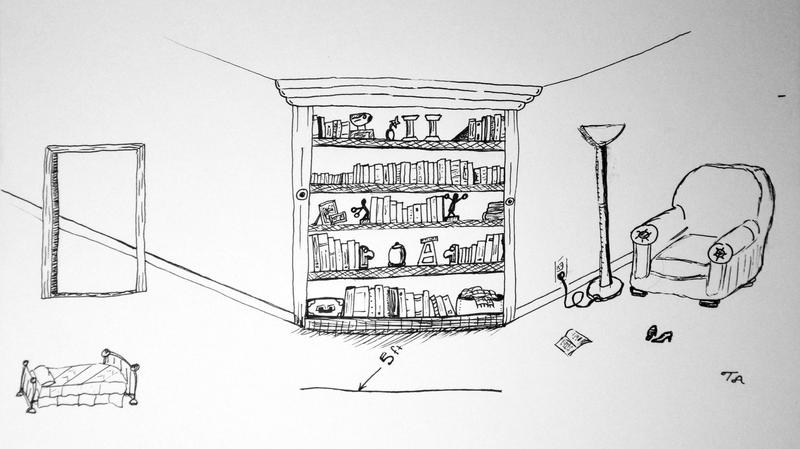 5 ft
TA